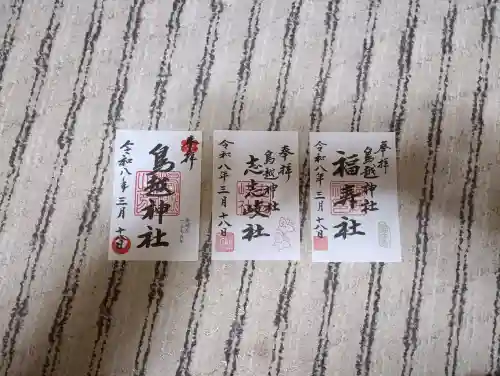 奉拝
鳥越神社
令和八年三月十八日
奉拝
鳥越神社
志志岐社
令和八年三月十八日
奉拝
鳥越神社
福寿社
令和八年三月十八日